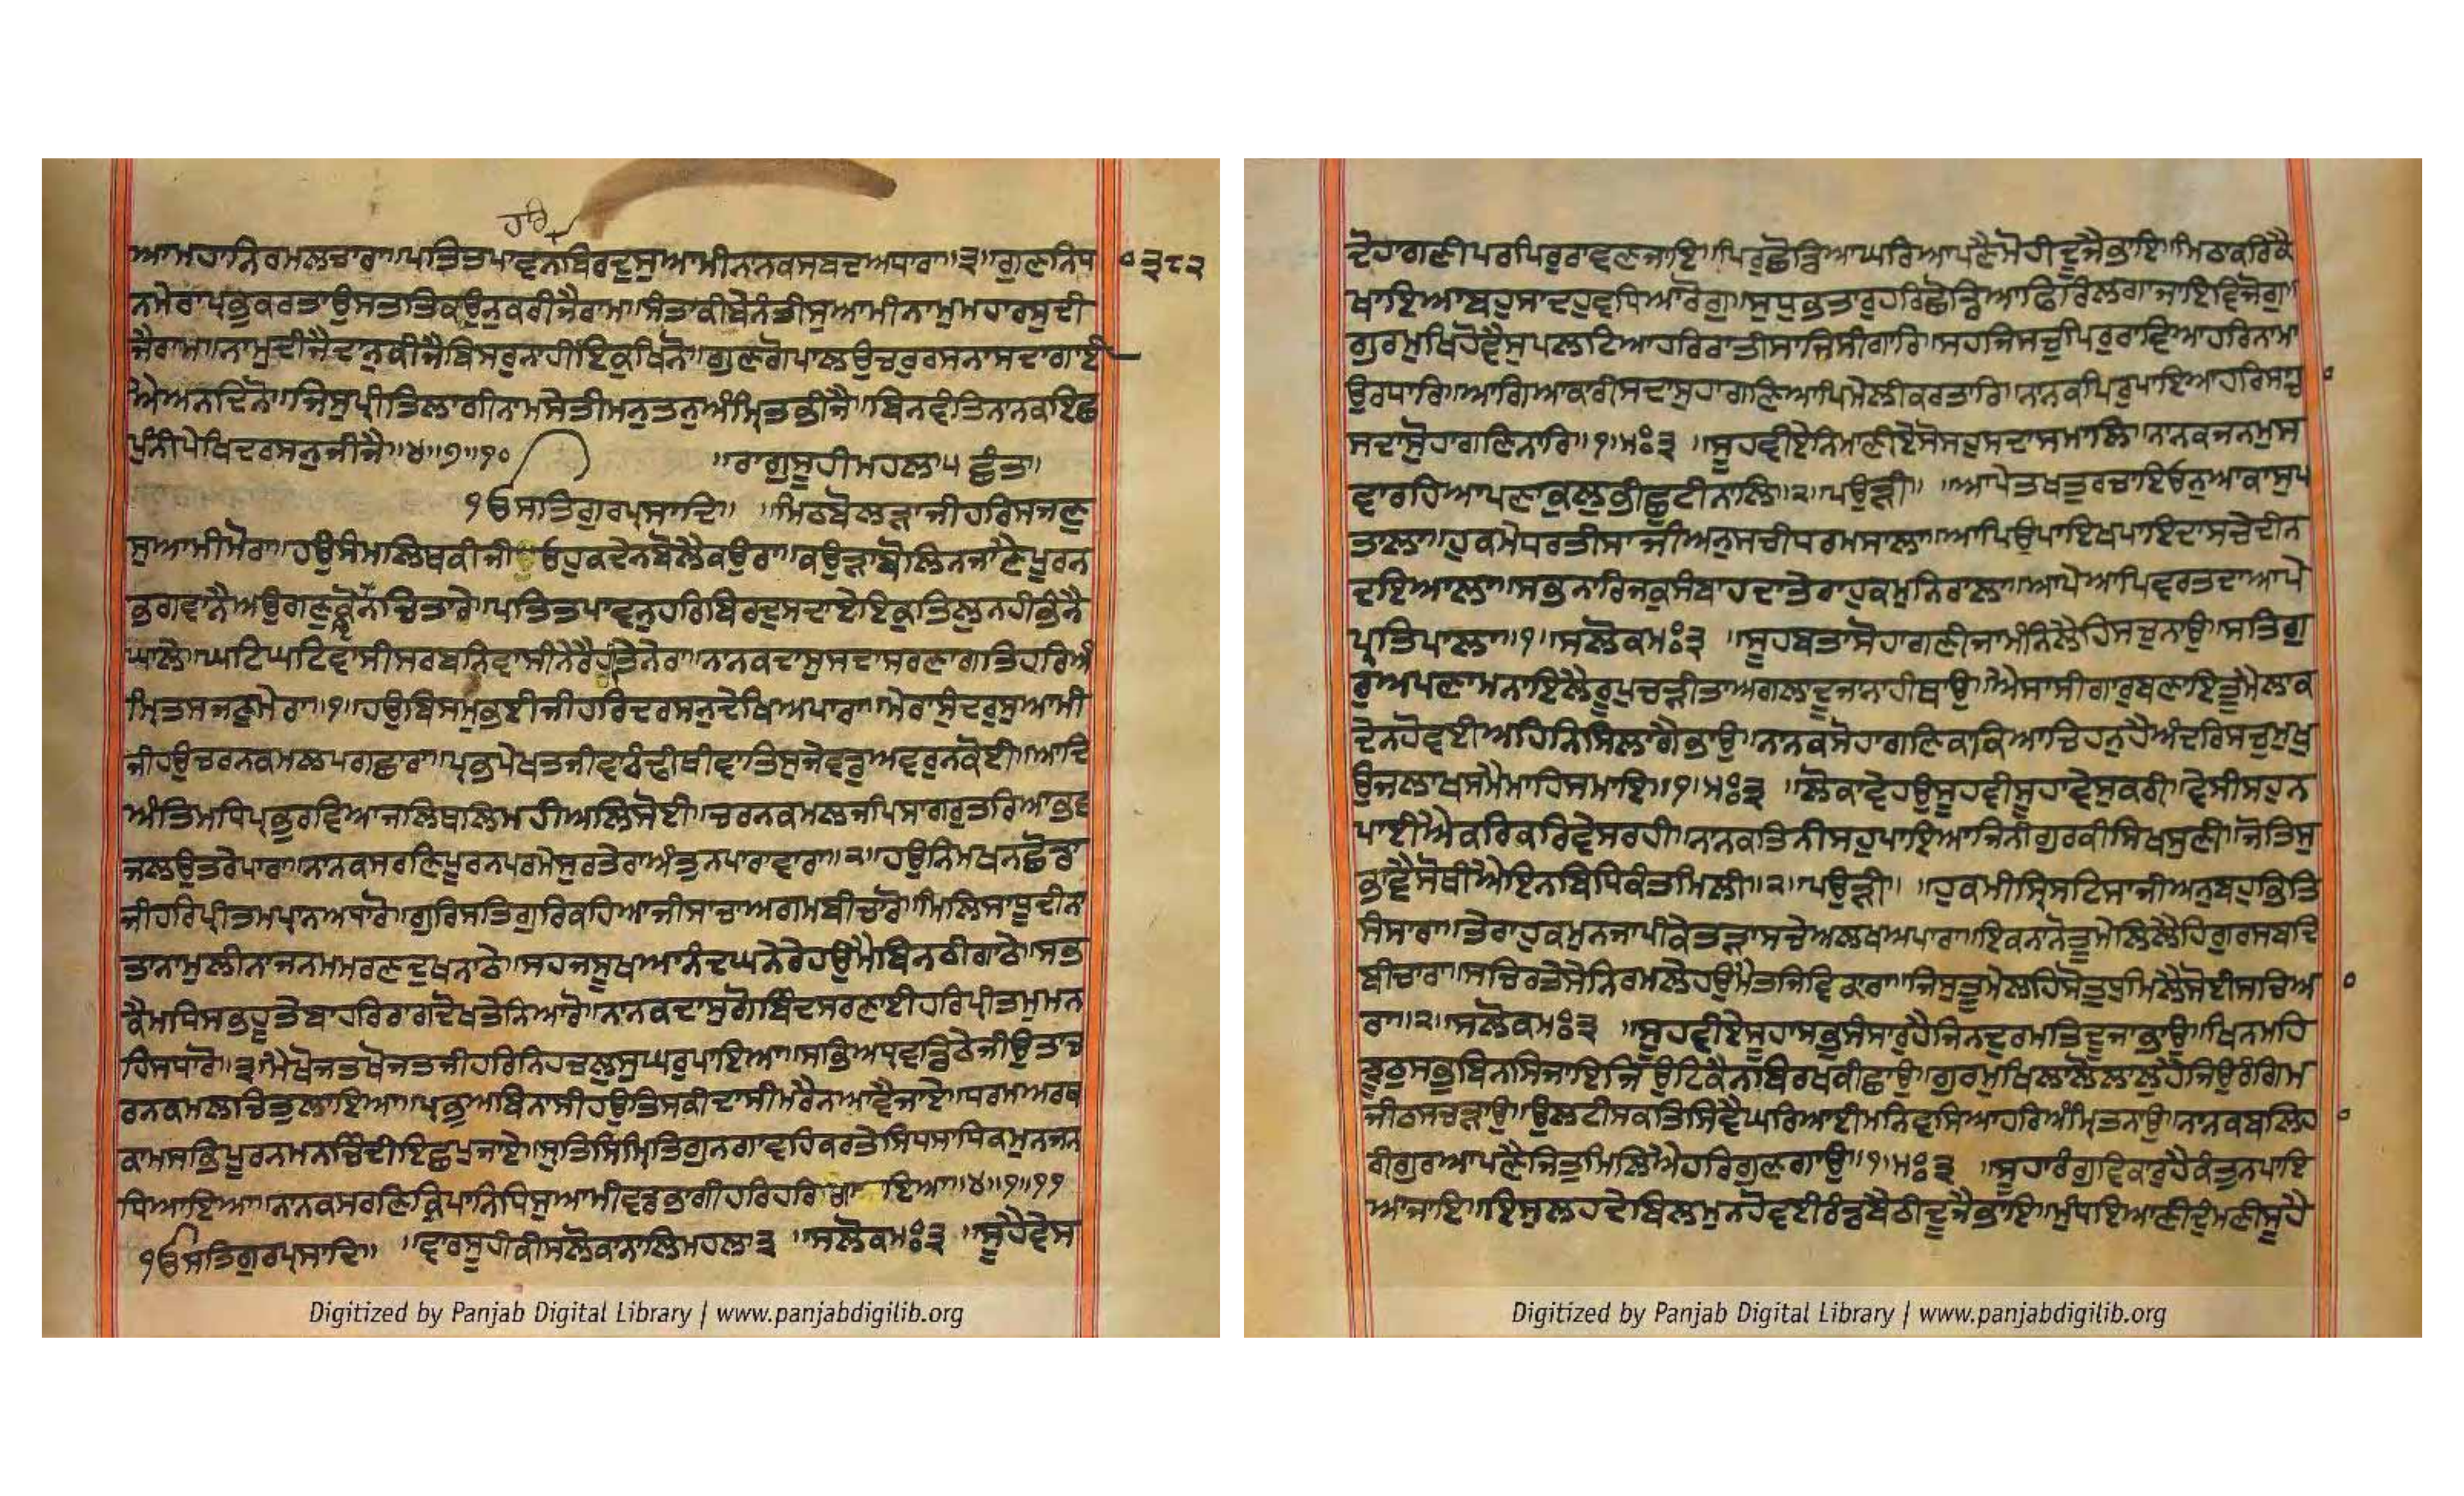 ਹਰਿ
ਆਮਹਾਨਿਰਮਲਚਾਰਾ॥ਪਤਿਤਪਾਵਨਬਿਰਦੁਸੁਆਮੀਨਾਨਕਸਬਦਅਧਾਰਾ॥੩॥ਗੁਣਨਿਧਾ
੩੮੨
ਨਮੇਰਾਪ੍ਰਭੁਕਰਤਾਉਸਤਤਿਕਉਨੁਕਰੀਜੈਰਾਮ॥ਸੰਤਾਕੀਬੇਨੰਤੀਸੁਆਮੀਨਾਮੁਮਹਾਰਸੁਦੀ
ਜੈਰਾਮ॥ਨਾਮੁਦੀਜੈਦਾਨੁਕੀਜੈਬਿਸਰੁਨਾਹੀਇਕੁਖਿਨੋ॥ਗੁਣਗੋਪਾਲਉਚਰੁਰਸਨਾਸਦਾਗਾਈ
ਐਅਨਦਿਨੋ॥ਜਿਸੁਪ੍ਰੀਤਿਲਾਗੀਨਾਮਸੇਤੀਮਨੁਤਨੁਅੰਮ੍ਰਿਤਭੀਜੈ॥ਬਿਨਵੰਤਿਨਾਨਕਇਛ
ਪੁੰਨੀਪੇਖਿਦਰਸਨੁਜੀਜੈ॥੪॥੭॥੧੦ ॥ਰਾਗੁਸੂਹੀਮਹਲਾ੫ ਛੰਤ॥
੧ੳਸਤਿਗੁਰਪ੍ਰਸਾਦਿ॥ ॥ਮਿਠਬੋਲੜਾਜੀਹਰਿਸਜਣੁ
ਸੁਆਮੀਮੋਰਾ॥ਹਉਸੰਮਲਿਥਕੀਜੀਓਹੁਕਦੇਨਬੋਲੈਕਉਰਾ॥ਕਉੜਾਬੋਲਿਨਜਾਨੈਪੂਰਨ
ਭਗਵਾਨੈਅਉਗਣੁਕੋਨਚਿਤਾਰੇ॥ਪਤਿਤਪਾਵਨੁਹਰਿਬਿਰਦੁਸਦਾਏਇਕੁਤਿਲੁਨਹੀਭੰਨੈ
ਘਾਲੇ॥ਘਟਿਘਟਿਵਾਸੀਸਰਬਨਿਵਾਸੀਨੇਰੈਹੀਤੇਨੇਰਾ॥ਨਾਨਕਦਾਸੁਸਦਾਸਰਣਾਗਤਿਹਰਿਅੰ
ਮ੍ਰਿਤਸਜਣੁਮੇਰਾ॥੧॥ਹਉਬਿਸਮੁਭਈਜੀਹਰਿਦਰਸਨੁਦੇਖਿਅਪਾਰਾ॥ਮੇਰਾਸੁੰਦਰੁਸੁਆਮੀ
ਜੀਹਉਚਰਨਕਮਲਪਗਛਾਰਾ॥ਪ੍ਰਭਪੇਖਤਜੀਵਾਠੰਢੀਥੀਵਾਤਿਸੁਜੇਵਡੁਅਵਰੁਨਕੋਈ॥ਆਦਿ
ਅੰਤਿਮਧਿਪ੍ਰਭੁਰਵਿਆਜਲਿਥਲਿਮਹੀਅਲਿਸੋਈ॥ਚਰਨਕਮਲਜਪਿਸਾਗਰੁਤਰਿਆਭਵ
ਜਲਉਤਰੇਪਾਰਾ॥ਨਾਨਕਸਰਣਿਪੂਰਨਪਰਮੇਸੁਰਤੇਰਾਅੰਤੁਨਪਾਰਾਵਾਰਾ॥੨॥ਹਉਨਿਮਖਨਛੋਡਾ
ਜੀਹਰਿਪ੍ਰੀਤਮਪ੍ਰਾਨਅਧਾਰੋ॥ਗੁਰਿਸਤਿਗੁਰਿਕਹਿਆਜੀਸਾਚਾਅਗਮਬੀਚਾਰੋ॥ਮਿਲਿਸਾਧੂਦੀਨਾ
ਤਾਨਾਮੁਲੀਨਾਜਨਮਮਰਣਦੁਖਨਾਠੇ॥ਸਹਜਸੂਖਆਨੰਦਘਨੇਰੇਹਉਮੈਬਿਨਠੀਗਾਠੇ॥ਸਭ
ਕੈਮਧਿਸਭਹੂਤੇਬਾਹਰਿਰਾਗਦੋਖਤੇਨਿਆਰੋ॥ਨਾਨਕਦਾਸੁਗੋਬਿੰਦਸਰਣਾਈਹਰਿਪ੍ਰੀਤਮੁਮਨ
ਹਿਸਧਾਰੋ॥੩॥ਮੈਖੋਜਤਖੋਜਤਜੀਹਰਿਨਿਹਚਲੁਸੁਘਰੁਪਾਇਆ॥ਸਭਿਅਧ੍ਰੁਵਡਿਠੇਜੀਉਤਾਚ
ਰਨਕਮਲਚਿਤੁਲਾਇਆ॥ਪ੍ਰਭੁਅਬਿਨਾਸੀਹਉਤਿਸਕੀਦਾਸੀਮਰੈਨਆਵੈਜਾਏ॥ਧਰਮਅਰਥ
ਕਾਮਸਭਿਪੂਰਨਮਨਚਿੰਦੀਇਛਪੁਜਾਏ॥ਸ੍ਰੁਤਿਸਿਮ੍ਰਿਤਿਗੁਨਗਾਵਹਿਕਰਤੇਸਿਧਸਾਧਿਕਮੁਨਿਜਨ
ਧਿਆਇਆ॥ਨਾਨਕਸਰਣਿਕ੍ਰਿਪਾਨਿਧਿਸੁਆਮੀਵਡਭਾਗੀਹਰਿਹਰਿਗਾਇਆ॥੪॥੧॥੧੧
੧ੳਸਤਿਗੁਰਪ੍ਰਸਾਦਿ॥ ॥ਵਾਰਸੂਹੀਕੀਸਲੋਕਨਾਲਿਮਹਲਾ੩ ॥ਸਲੋਕਮਃ੩ ॥ਸੂਹੈਵੇਸ
Digitized by Panjab Digital Library | www.panjabdigilib.org
ਦੋਹਾਗਣੀਪਰਪਿਰੁਰਾਵਣਜਾਇ॥ਪਿਰੁਛੋਡਿਆਘਰਿਆਪਣੈਮੋਹੀਦੂਜੈਭਾਇ॥ਮਿਠਾਕਰਿਕੈ
ਖਾਇਆਬਹੁਸਾਦਹੁਵਧਿਆਰੋਗੁ॥ਸੁਧੁਭਤਾਰੁਹਰਿਛੋਡਿਆਫਿਰਿਲਗਾਜਾਇਵਿਜੋਗੁ॥
ਗੁਰਮੁਖਿਹੋਵੈਸੁਪਲਟਿਆਹਰਿਰਾਤੀਸਾਜਿਸੀਗਾਰਿ॥ਸਹਜਿਸਚੁਪਿਰੁਰਾਵਿਆਹਰਿਨਾਮਾ
ਉਰਧਾਰਿ॥ਆਗਿਆਕਾਰੀਸਦਾਸੁਹਾਗਣਿਆਪਿਮੇਲੀਕਰਤਾਰਿ॥ਨਾਨਕਪਿਰੁਪਾਇਆਹਰਿਸਾਚਾ
ਸਦਾਸੋਹਾਗਣਿਨਾਰਿ॥੧॥ਮਃ੩ ॥ਸੂਹਵੀਏਨਿਮਾਣੀਏਸੋਸਹੁਸਦਾਸਮਾਲਿ॥ਨਾਨਕਜਨਮੁਸ
ਵਾਰਹਿਆਪਣਾਕੁਲੁਭੀਛੁਟੀਨਾਲਿ॥੨॥ਪਉੜੀ॥ ॥ਆਪੇਤਖਤੁਰਚਾਇਓਨੁਆਕਾਸਪ
ਤਾਲਾ॥ਹੁਕਮੇਧਰਤੀਸਾਜੀਅਨੁਸਚੀਧਰਮਸਾਲਾ॥ਆਪਿਉਪਾਇਖਪਾਇਦਾਸਚੇਦੀਨ
ਦਇਆਲਾ॥ਸਭਨਾਰਿਜਕੁਸੰਬਾਹਦਾਤੇਰਾਹੁਕਮੁਨਿਰਾਲਾ॥ਆਪੇਆਪਿਵਰਤਦਾਆਪੇ
ਪ੍ਰਤਿਪਾਲਾ॥੧॥ਸਲੋਕਮਃ੩ ॥ਸੂਹਬਤਾਸੋਹਾਗਣੀਜਾਮੰਨਿਲੈਹਿਸਚੁਨਾਉ॥ਸਤਿਗੁ
ਰੁਅਪਣਾਮਨਾਇਲੈਰੂਪੁਚੜੀਤਾਅਗਲਾਦੂਜਾਨਾਹੀਥਾਉ॥ਐਸਾਸੀਗਾਰੁਬਣਾਇਤੂਮੈਲਾਕ
ਦੇਨਹੋਵਈਅਹਿਨਿਸਿਲਾਗੈਭਾਉ॥ਨਾਨਕਸੋਹਾਗਣਿਕਾਕਿਆਚਿਹਨੁਹੈਅੰਦਰਿਸਚੁਮੁਖੁ
ਉਜਲਾਖਸਮੈਮਾਹਿਸਮਾਇ॥੧॥ਮਃ੩ ॥ਲੋਕਾਵੇਹਉਸੂਹਵੀਸੂਹਾਵੇਸੁਕਰੀ॥ਵੇਸੀਸਹੁਨ
ਪਾਈਐਕਰਿਕਰਿਵੇਸਰਹੀ॥ਨਾਨਕਤਿਨੀਸਹੁਪਾਇਆਜਿਨੀਗੁਰਕੀਸਿਖਸੁਣੀ॥ਜੋਤਿਸੁ
ਭਾਵੈਸੋਥੀਐਇਨਬਿਧਿਕੰਤਮਿਲੀ॥੨॥ਪਉੜੀ॥ ॥ਹੁਕਮੀਸ੍ਰਿਸਟਿਸਾਜੀਅਨੁਬਹੁਭਿਤਿ
ਸੰਸਾਰਾ॥ਤੇਰਾਹੁਕਮੁਨਜਾਪੀਕੇਤੜਾਸਚੇਅਲਖਅਪਾਰਾ॥ਇਕਨਾਨੋਤੂਮੇਲਿਲੈਹਿਗੁਰਸਬਦਿ
ਬੀਚਾਰਾ॥ਸਚਿਰਤੇਸੇਨਿਰਮਲੇਹਉਮੈਤਜਿਵਿਕਾਰਾ॥ਜਿਸੁਤੂਮੇਲਹਿਸੋਤੁਧੁਮਿਲੈਸੋਈਸਚਿਆ
ਰਾ॥੨॥ਸਲੋਕਮਃ੩ ॥ਸੂਹਵੀਏਸੂਹਾਸਭੁਸੰਸਾਰੁਹੈਜਿਨਦੁਰਮਤਿਦੂਜਾਭਾਉ॥ਖਿਨਮਹਿ
ਝੂਠੁਸਭੁਬਿਨਸਿਜਾਇਜਿਉਟਿਕੈਨਬਿਰਖਕੀਛਾਉ॥ਗੁਰਮੁਖਿਲਾਲੋਲਾਲੁਹੈਜਿਉਰੰਗਿਮ
ਜੀਠਸਚੜਾਉ॥ਉਲਟੀਸਕਤਿਸਿਵੈਘਰਿਆਈਮਨਿਵਸਿਆਹਰਿਅੰਮ੍ਰਿਤਨਾਉ॥ਨਾਨਕਬਲਿਹਾ
ਰੀਗੁਰਆਪਣੇਜਿਤੁਮਿਲਿਐਹਰਿਗੁਣਗਾਉ॥੧॥ਮਃ੩ ॥ਸੂਹਾਰੰਗੁਵਿਕਾਰੁਹੈਕੰਤੁਨਪਾਇ
ਆਜਾਇ॥ਇਸੁਲਹਦੇਬਿਲਮੁਨਹੋਵਈਰੰਡਬੈਠੀਦੂਜੈਭਾਇ॥ਮੁੰਧਇਆਣੀਦੁੰਮਣੀਸੂਹੈ
Digitized by Panjab Digital Library | www.panjabdigilib.org